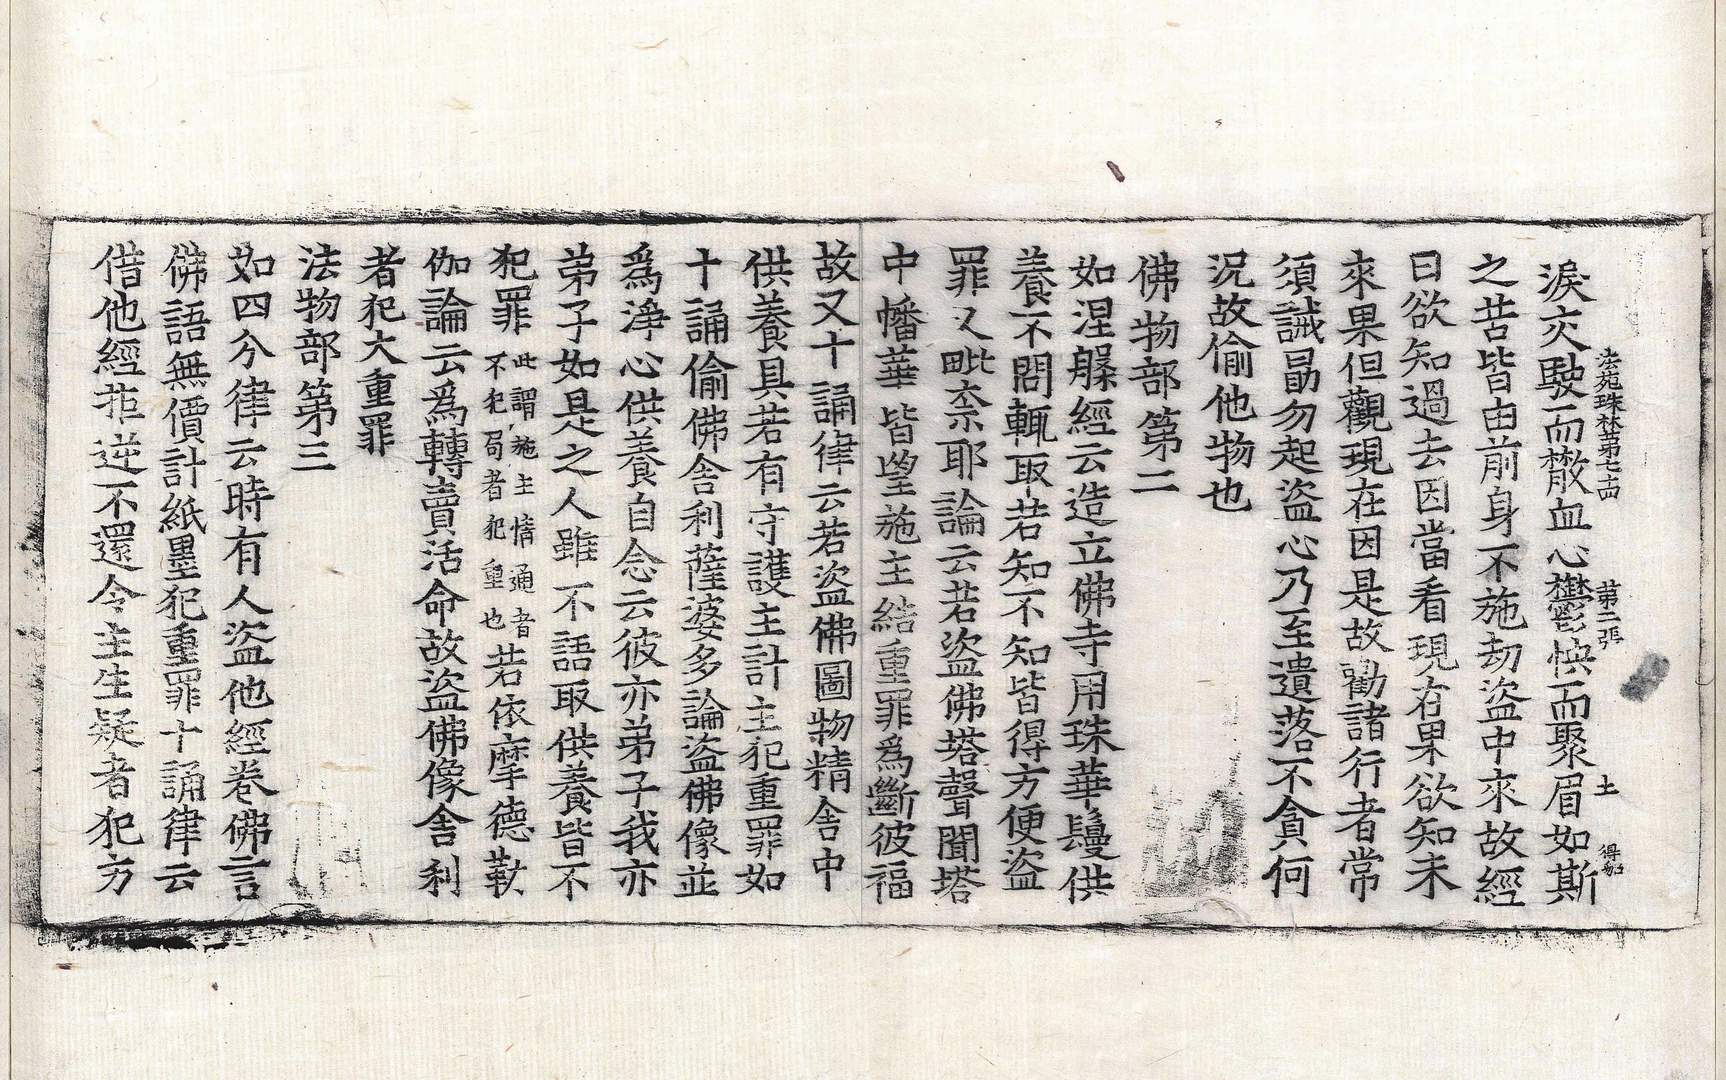 法苑珠林第七十四 第二張 土 得
淚交駛而㪚血心鬱怏而聚眉如斯
之苦皆由前身不施劫盜中來故經
曰欲知過去因當看現在果欲知未
來果但觀現在因是故勸諸行者常
須誡勗勿起盜心乃至遺落不貪何
況故偷他物也
佛物部第二
如涅槃經云造立佛寺用珠華鬘供
養不問輒取若知不知皆得方便盜
罪又毗柰耶論云若盜佛塔聲聞塔
中幡華皆望施主結重罪爲斷彼福
故又十誦律云若盜佛圖物精舍中
供養具若有守護主計主犯重罪如
十誦偷佛舍利薩婆多論盜佛像並
爲淨心供養自念云彼亦弟子我亦
弟子如是之人雖不語取供養皆不
犯罪此謂施主情通者不犯局者犯重也若依摩德勒
伽論云爲轉賣活命故盜佛像舍利
者犯大重罪
法物部第三
如四分律云時有人盜他經卷佛言
佛語無價計紙墨犯重罪十誦律云
借他經拒逆不還令主生疑者犯方